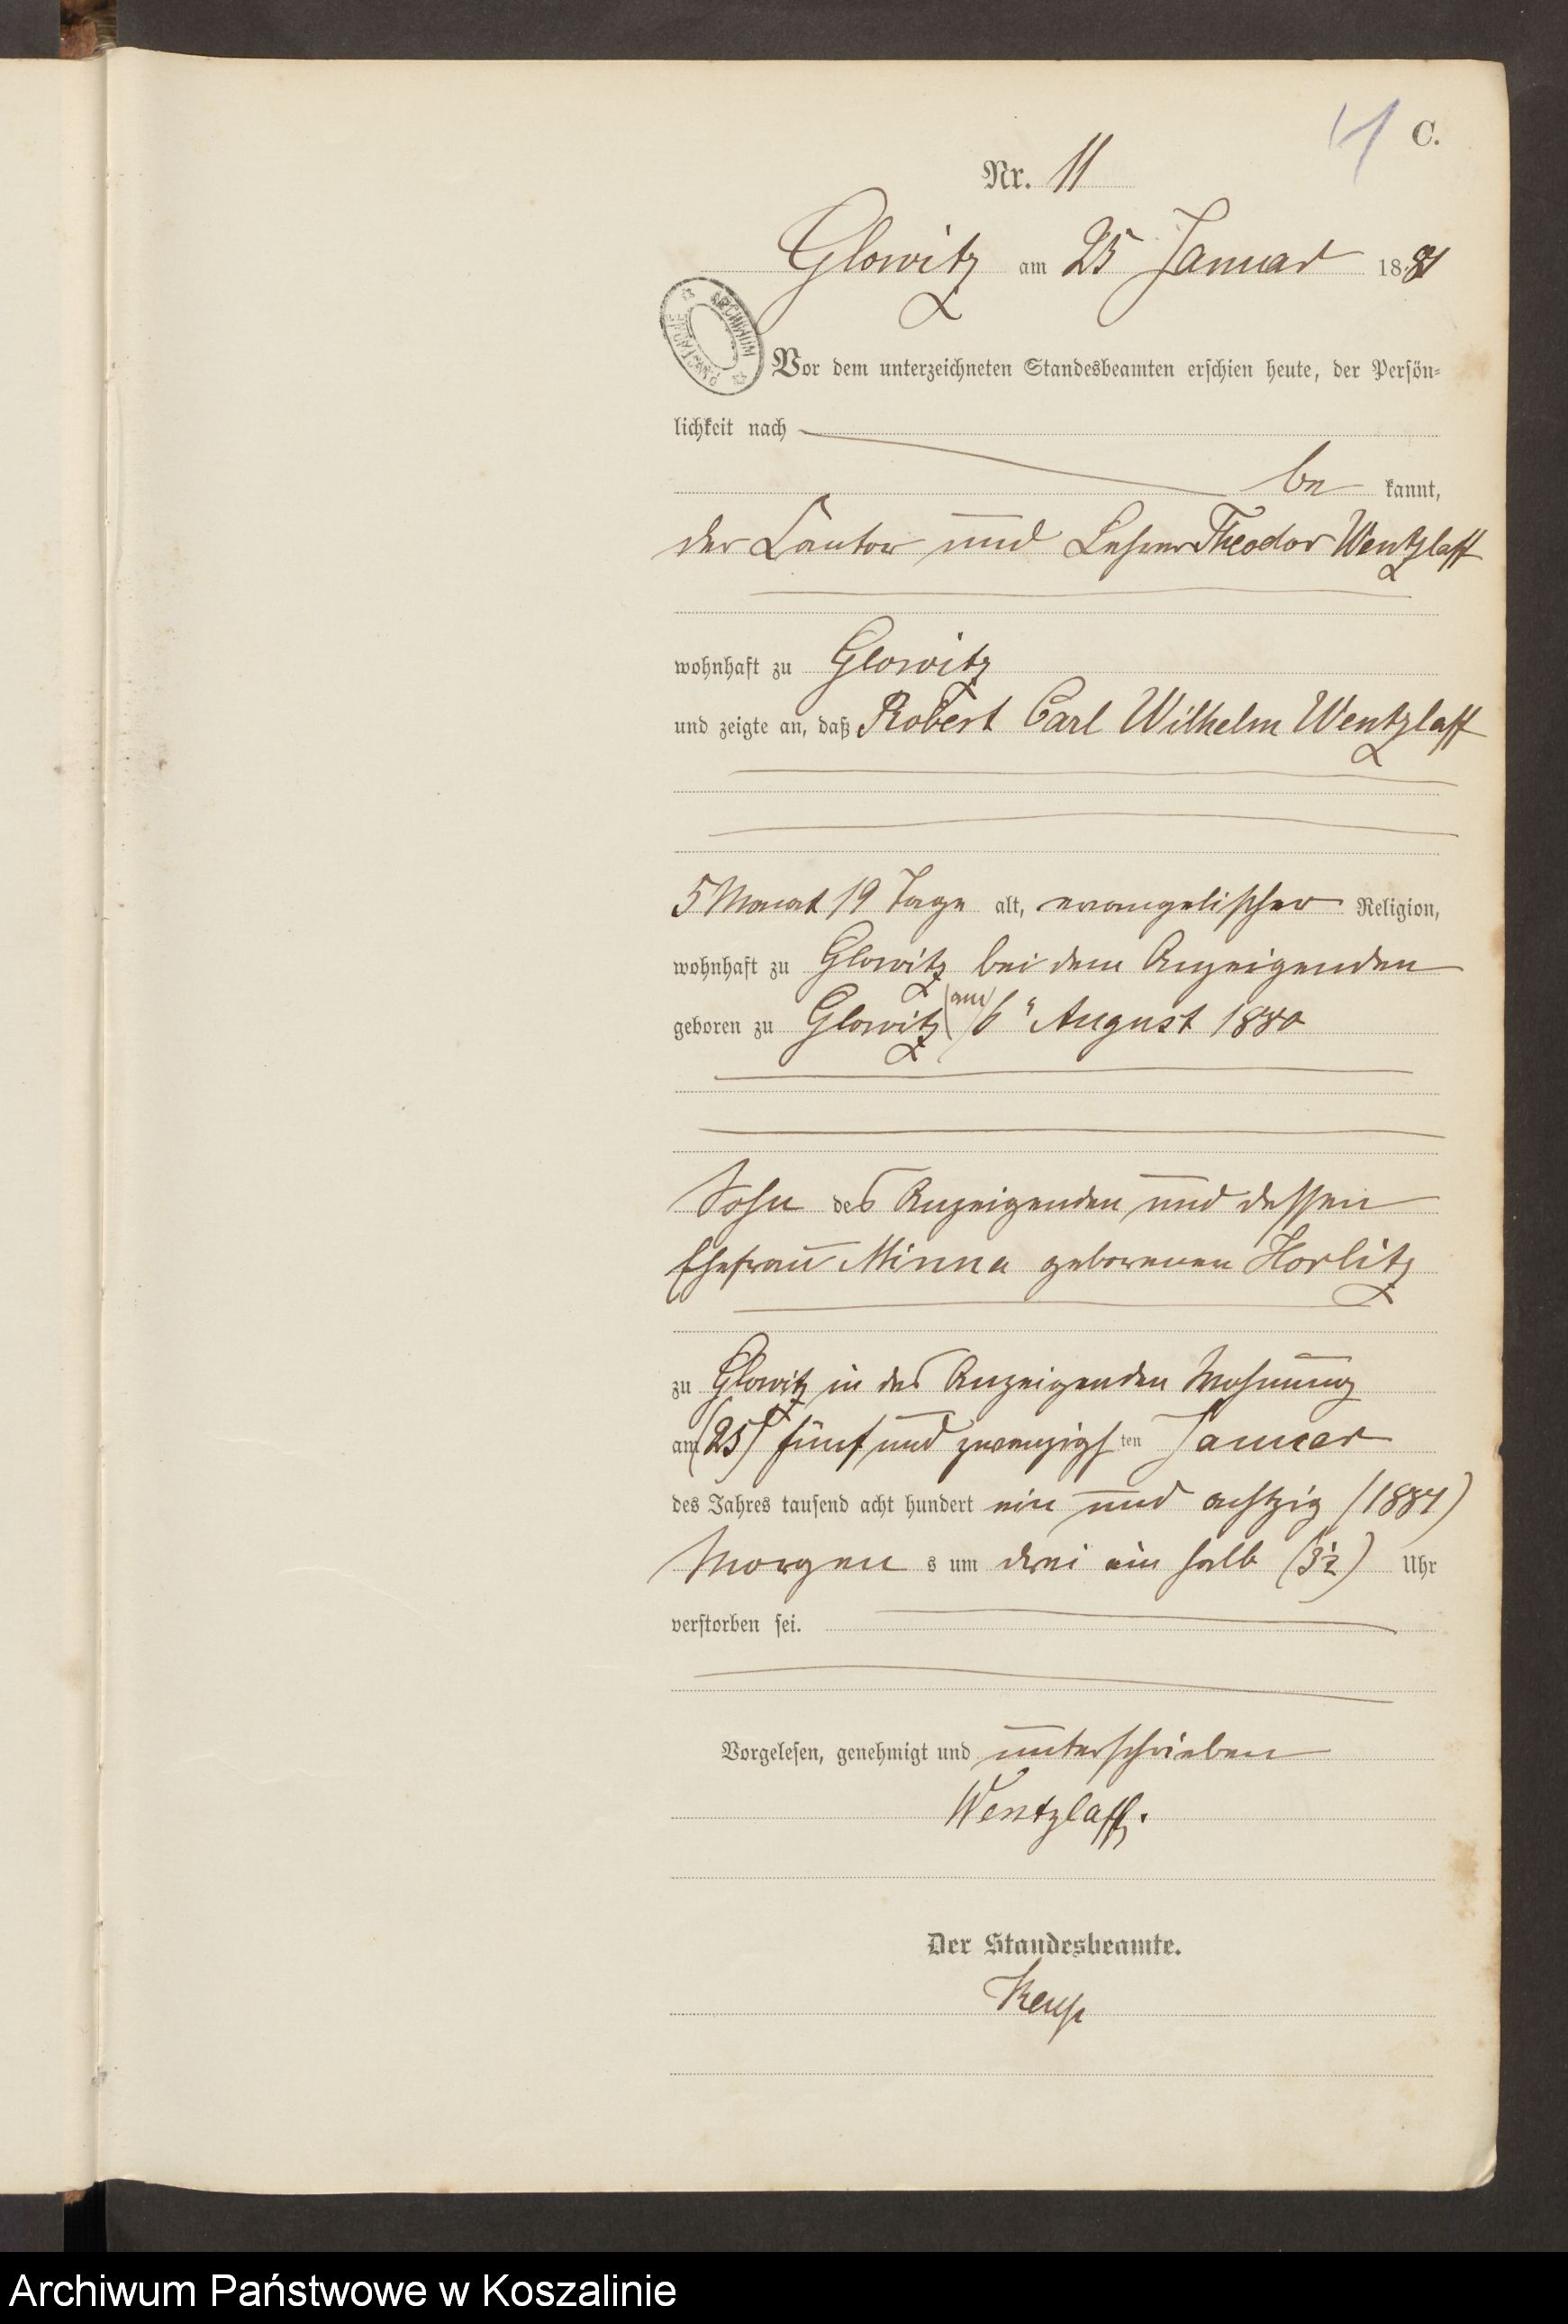 C.
Nr. 11
Glowitz am 25 Januar 1881
ARCHIWUM PAŃSTWOWE
Vor dem unterzeichneten Standesbeamten erschien heute, der Persön-
lichkeit nach
be kannt,
der Cantor und Lehrer Theodor Wentzlaff
wohnhaft zu Glowitz
und zeigte an, daß Robert Carl Wilhelm Wentzlaff
5 Monat 19 Tage alt, evangelischer Religion,
wohnhaft zu Glowitz bei dem Anzeigenden
geboren zu Glowitz (am) 6" August 1880
Sohn des Anzeigenden und dessen
Ehefrau Minna geborenen Horlitz
zu Glowitz in des Anzeigenden Wohnung
am (25) fünf und zwanzigsten Januar
des Jahres tausend acht hundert ein und achtzig (1881)
Morgens um drei ein halb (3½) Uhr
verstorben sei.
Vorgelesen, genehmigt und unterschrieben
Wentzlaff.
Der Standesbeamte.
Archiwum Państwowe w Koszalinie